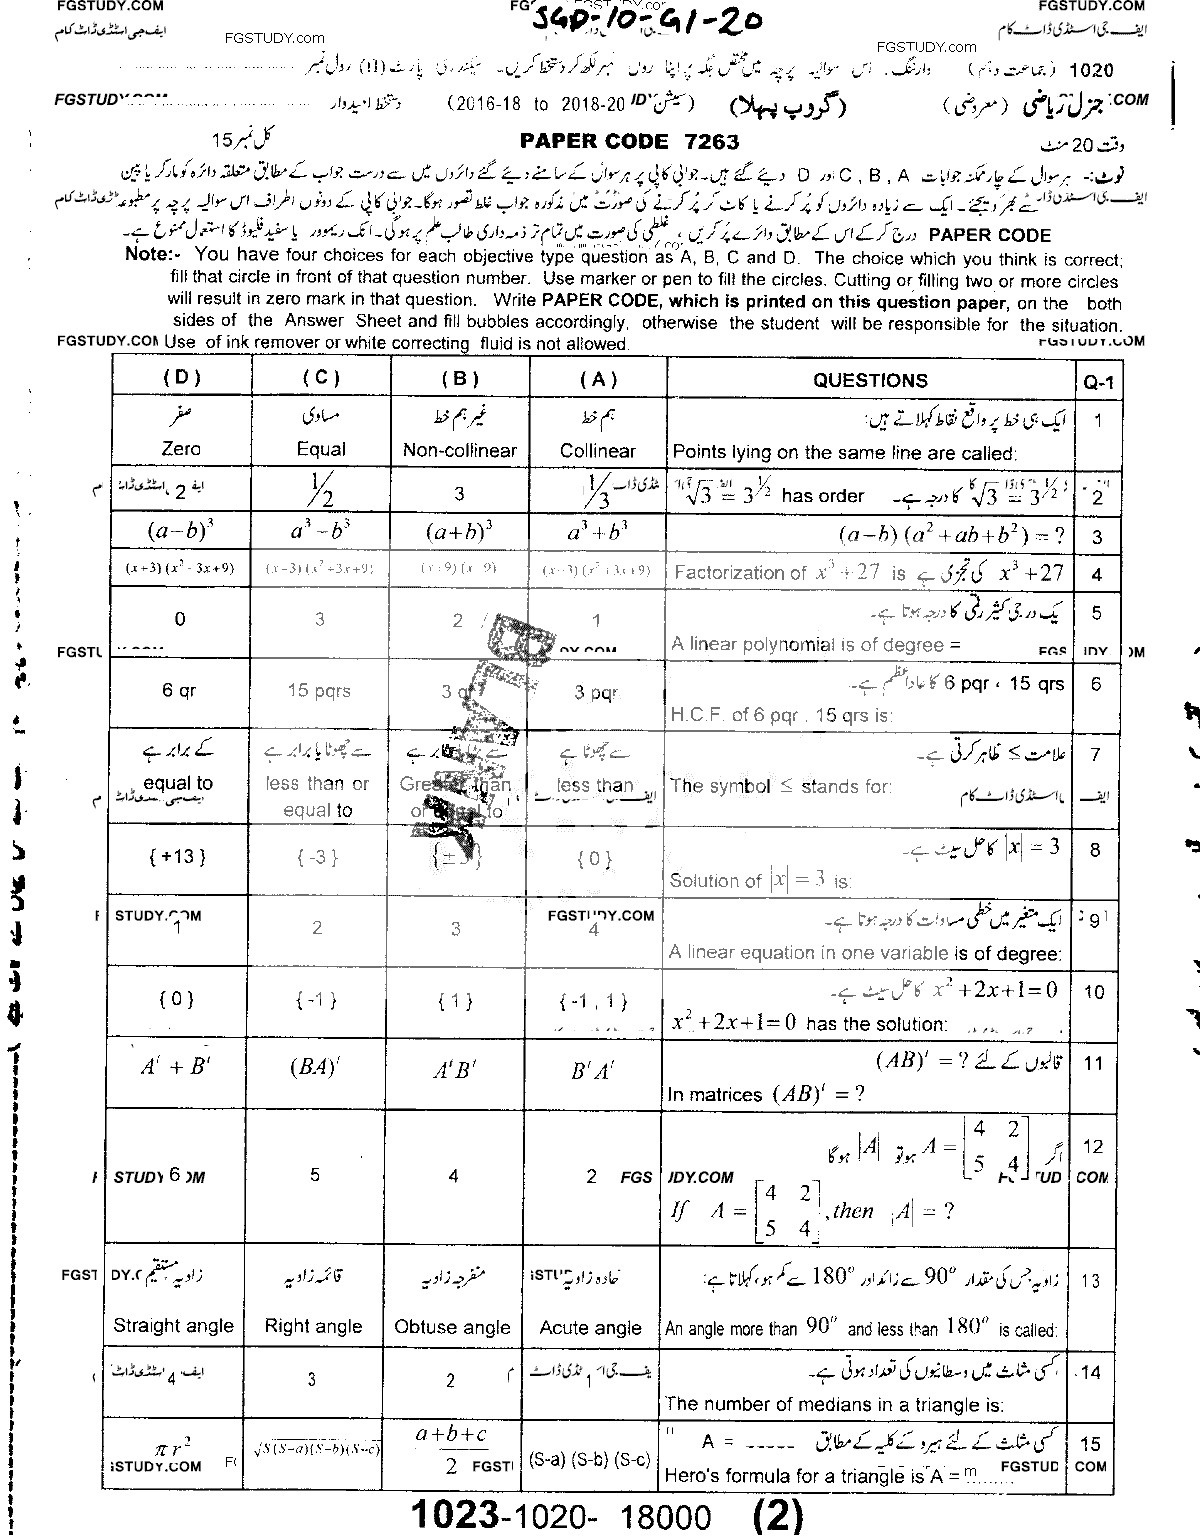 FGSTUDY.COM FGSTUDY.COM
SGD-10-G1-20
ایف جی اسٹڈی ڈاٹ کام ایف جی اسٹڈی ڈاٹ کام
FGSTUDY.com FGSTUDY.com
1020 (جماعت دہم) وارننگ: اس سوالیہ پرچہ میں مختص جگہ پر اپنا رول نمبر لکھ کر دستخط کریں۔ سیکنڈری پارٹ (II) رول نمبر
جنرل ریاضی (معروضی) (گروپ پہلا) (سیشن 2016-18 to 2018-20) دستخط امیدوار
وقت 20 منٹ PAPER CODE 7263 کل نمبر 15
نوٹ:- ہر سوال کے چار ممکنہ جوابات A , B , C اور D دیئے گئے ہیں۔ جوابی کاپی پر ہر سوال کے سامنے دیئے گئے دائروں میں سے درست جواب کے مطابق متعلقہ دائرہ کو مارکر یا پین
سے بھر دیجئے۔ ایک سے زیادہ دائروں کو پُر کرنے یا کاٹ کر پُر کرنے کی صورت میں مذکورہ جواب غلط تصور ہوگا۔ جوابی کاپی کے دونوں اطراف اس سوالیہ پرچہ پر مطبوعہ
PAPER CODE درج کرکے اس کے مطابق دائرے پُر کریں، غلطی کی صورت میں تمام تر ذمہ داری طالب علم پر ہوگی۔ انک ریموور یا سفید فلیوڈ کا استعمال ممنوع ہے۔
Note:- You have four choices for each objective type question as A, B, C and D. The choice which you think is correct;
fill that circle in front of that question number. Use marker or pen to fill the circles. Cutting or filling two or more circles
will result in zero mark in that question. Write PAPER CODE, which is printed on this question paper, on the both
sides of the Answer Sheet and fill bubbles accordingly, otherwise the student will be responsible for the situation.
FGSTUDY.COM Use of ink remover or white correcting fluid is not allowed. FGSTUDY.COM
( D ) ( C ) ( B ) ( A ) QUESTIONS Q-1
صفر مساوی غیر ہم خط ہم خط ایک ہی خط پر واقع نقاط کہلاتے ہیں: 1
Zero Equal Non-collinear Collinear Points lying on the same line are called:
2 1/2 3 1/3 √3 = 3^½ has order √3 = 3^½ کا درجہ ہے۔ 2
(a−b)³ a³−b³ (a+b)³ a³+b³ (a−b) (a²+ab+b²) = ? 3
(x+3)(x²−3x+9) (x−3)(x²+3x+9) (x+9)(x−9) (x−3)(x²+3x+9) Factorization of x³+27 is x³+27 کی تجزی ہے 4
0 3 2 1 یک درجی کثیر رقمی کا درجہ ہوتا ہے۔ 5
A linear polynomial is of degree =
6 qr 15 pqrs 3 qr 3 pqr 6 pqr ، 15 qrs کا عاداعظم ہے۔ 6
H.C.F. of 6 pqr , 15 qrs is:
کے برابر ہے سے چھوٹا یا برابر ہے سے بڑا یا برابر ہے سے چھوٹا ہے علامت ≤ ظاہر کرتی ہے۔ 7
equal to less than or Greater than less than The symbol ≤ stands for:
equal to or equal to
{ +13 } { -3 } { ±3 } { 0 } |x| = 3 کا حل سیٹ ہے۔ 8
Solution of |x| = 3 is:
1 2 3 4 ایک متغیر میں خطی مساوات کا درجہ ہوتا ہے۔ 9
A linear equation in one variable is of degree:
{ 0 } { -1 } { 1 } { -1 , 1 } x²+2x+1=0 کا حل سیٹ ہے۔ 10
x²+2x+1=0 has the solution:
Aᵗ + Bᵗ (BA)ᵗ AᵗBᵗ BᵗAᵗ قالبوں کے لئے (AB)ᵗ = ? 11
In matrices (AB)ᵗ = ?
6 5 4 2 اگر A = [4 2; 5 4] ہو تو |A| ہوگا 12
If A = [4 2; 5 4], then |A| = ?
زاویہ مستقیم قائمہ زاویہ منفرجہ زاویہ حادہ زاویہ زاویہ جس کی مقدار 90° سے زائد اور 180° سے کم ہو، کہلاتا ہے: 13
Straight angle Right angle Obtuse angle Acute angle An angle more than 90° and less than 180° is called:
4 3 2 1 کسی مثلث میں وسطانیوں کی تعداد ہوتی ہے۔ 14
The number of medians in a triangle is:
πr² √S(S−a)(S−b)(S−c) a+b+c/2 (S-a) (S-b) (S-c) کسی مثلث کے لئے ہیرو کے کلیہ کے مطابق A = ..... 15
Hero's formula for a triangle is A = ........
1023-1020- 18000 (2)